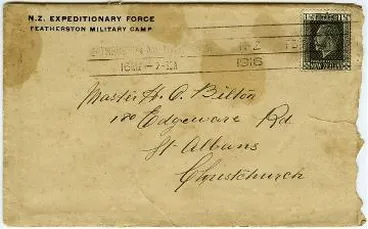 N.Z. EXPEDITIONARY FORCE
FEATHERSTON MILITARY CAMP
N.Z.
1916
Master H. O. Bilton
180 Edgeware Rd
St Albans
Christchurch